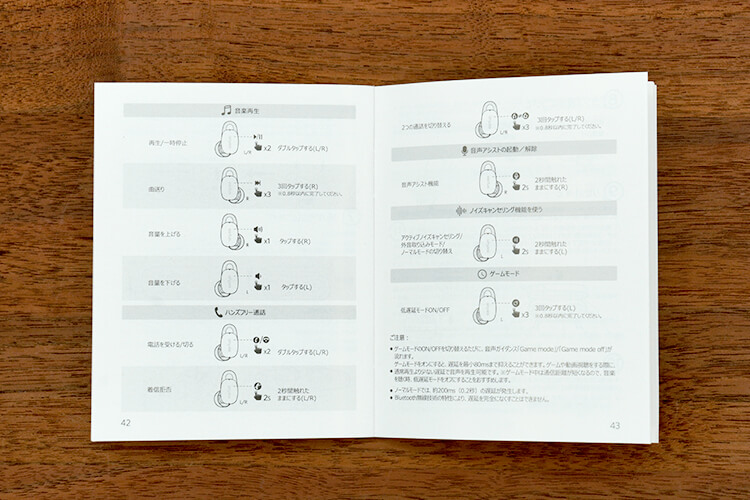 音楽再生
再生/一時停止
L/R
x2
ダブルタップする(L/R)
曲送り
R
x3
3回タップする(R)
※0.8秒以内に完了してください。
音量を上げる
R
x1
タップする(R)
音量を下げる
L
x1
タップする(L)
ハンズフリー通話
電話を受ける/切る
L/R
x2
ダブルタップする(L/R)
着信拒否
L/R
2s
2秒間触れた
ままにする(L/R)
42
2つの通話を切り替える
L/R
x3
3回タップする(L/R)
※0.8秒以内に完了してください。
音声アシストの起動／解除
音声アシスト機能
R
2s
2秒間触れた
ままにする(R)
ノイズキャンセリング機能を使う
アクティブノイズキャンセリング/
外音取り込みモード/
ノーマルモードの切り替え
L
2s
2秒間触れた
ままにする(L)
ゲームモード
低遅延モードON/OFF
L
x3
3回タップする(L)
※0.8秒以内に完了してください。
ご注意：
● ゲームモードのON/OFFを切り替えるたびに、音声ガイダンス「Game mode」/「Game mode off」が
流れます。
ゲームモードをオンにすると、遅延を最小60msまで抑えることができます。ゲームや動画視聴をする際に
● 通常再生より少ない遅延で音声を再生可能です。※ゲームモード中は通信距離が短くなるので、音楽
を聴く時、低遅延モードをオフにすることをおすすめします。
● ノーマルモードでは、約200ms（0.2秒）の遅延が発生します。
● Bluetooth無線技術の特性により、遅延を完全になくすことはできません。
43